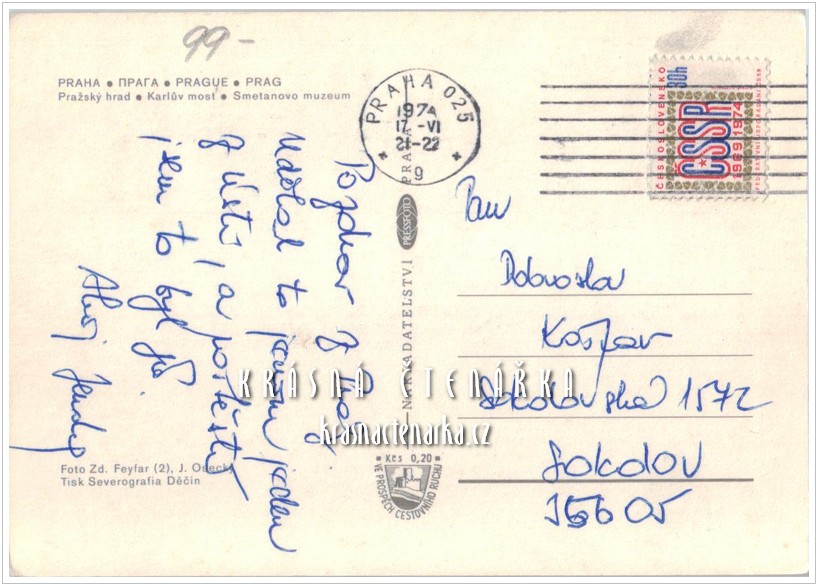 99-
PRAHA • ПРАГА • PRAGUE • PRAG
Pražský hrad • Karlův most • Smetanovo muzeum
Pozdrav z
udělal to jeden
z Ústí a
jsem to byl já.
Ahoj
Foto Zd. Feyfar (2), J.
Tisk Severografia Děčín
PRAHA 025
1974
17.-VI
21-22
9
NAKLADATELSTVÍ
PRESSFOTO
PRAHA
Kčs 0,20
VE PROSPĚCH CESTOVNÍHO RUCHU
ČESKOSLOVENSKO
30h
ČSSR
1969 1974
Pan
Dobroslav
Sokolovská 1572
Sokolov
35605
KRÁSNÁ ČTENÁŘKA
krasnactenarka.cz